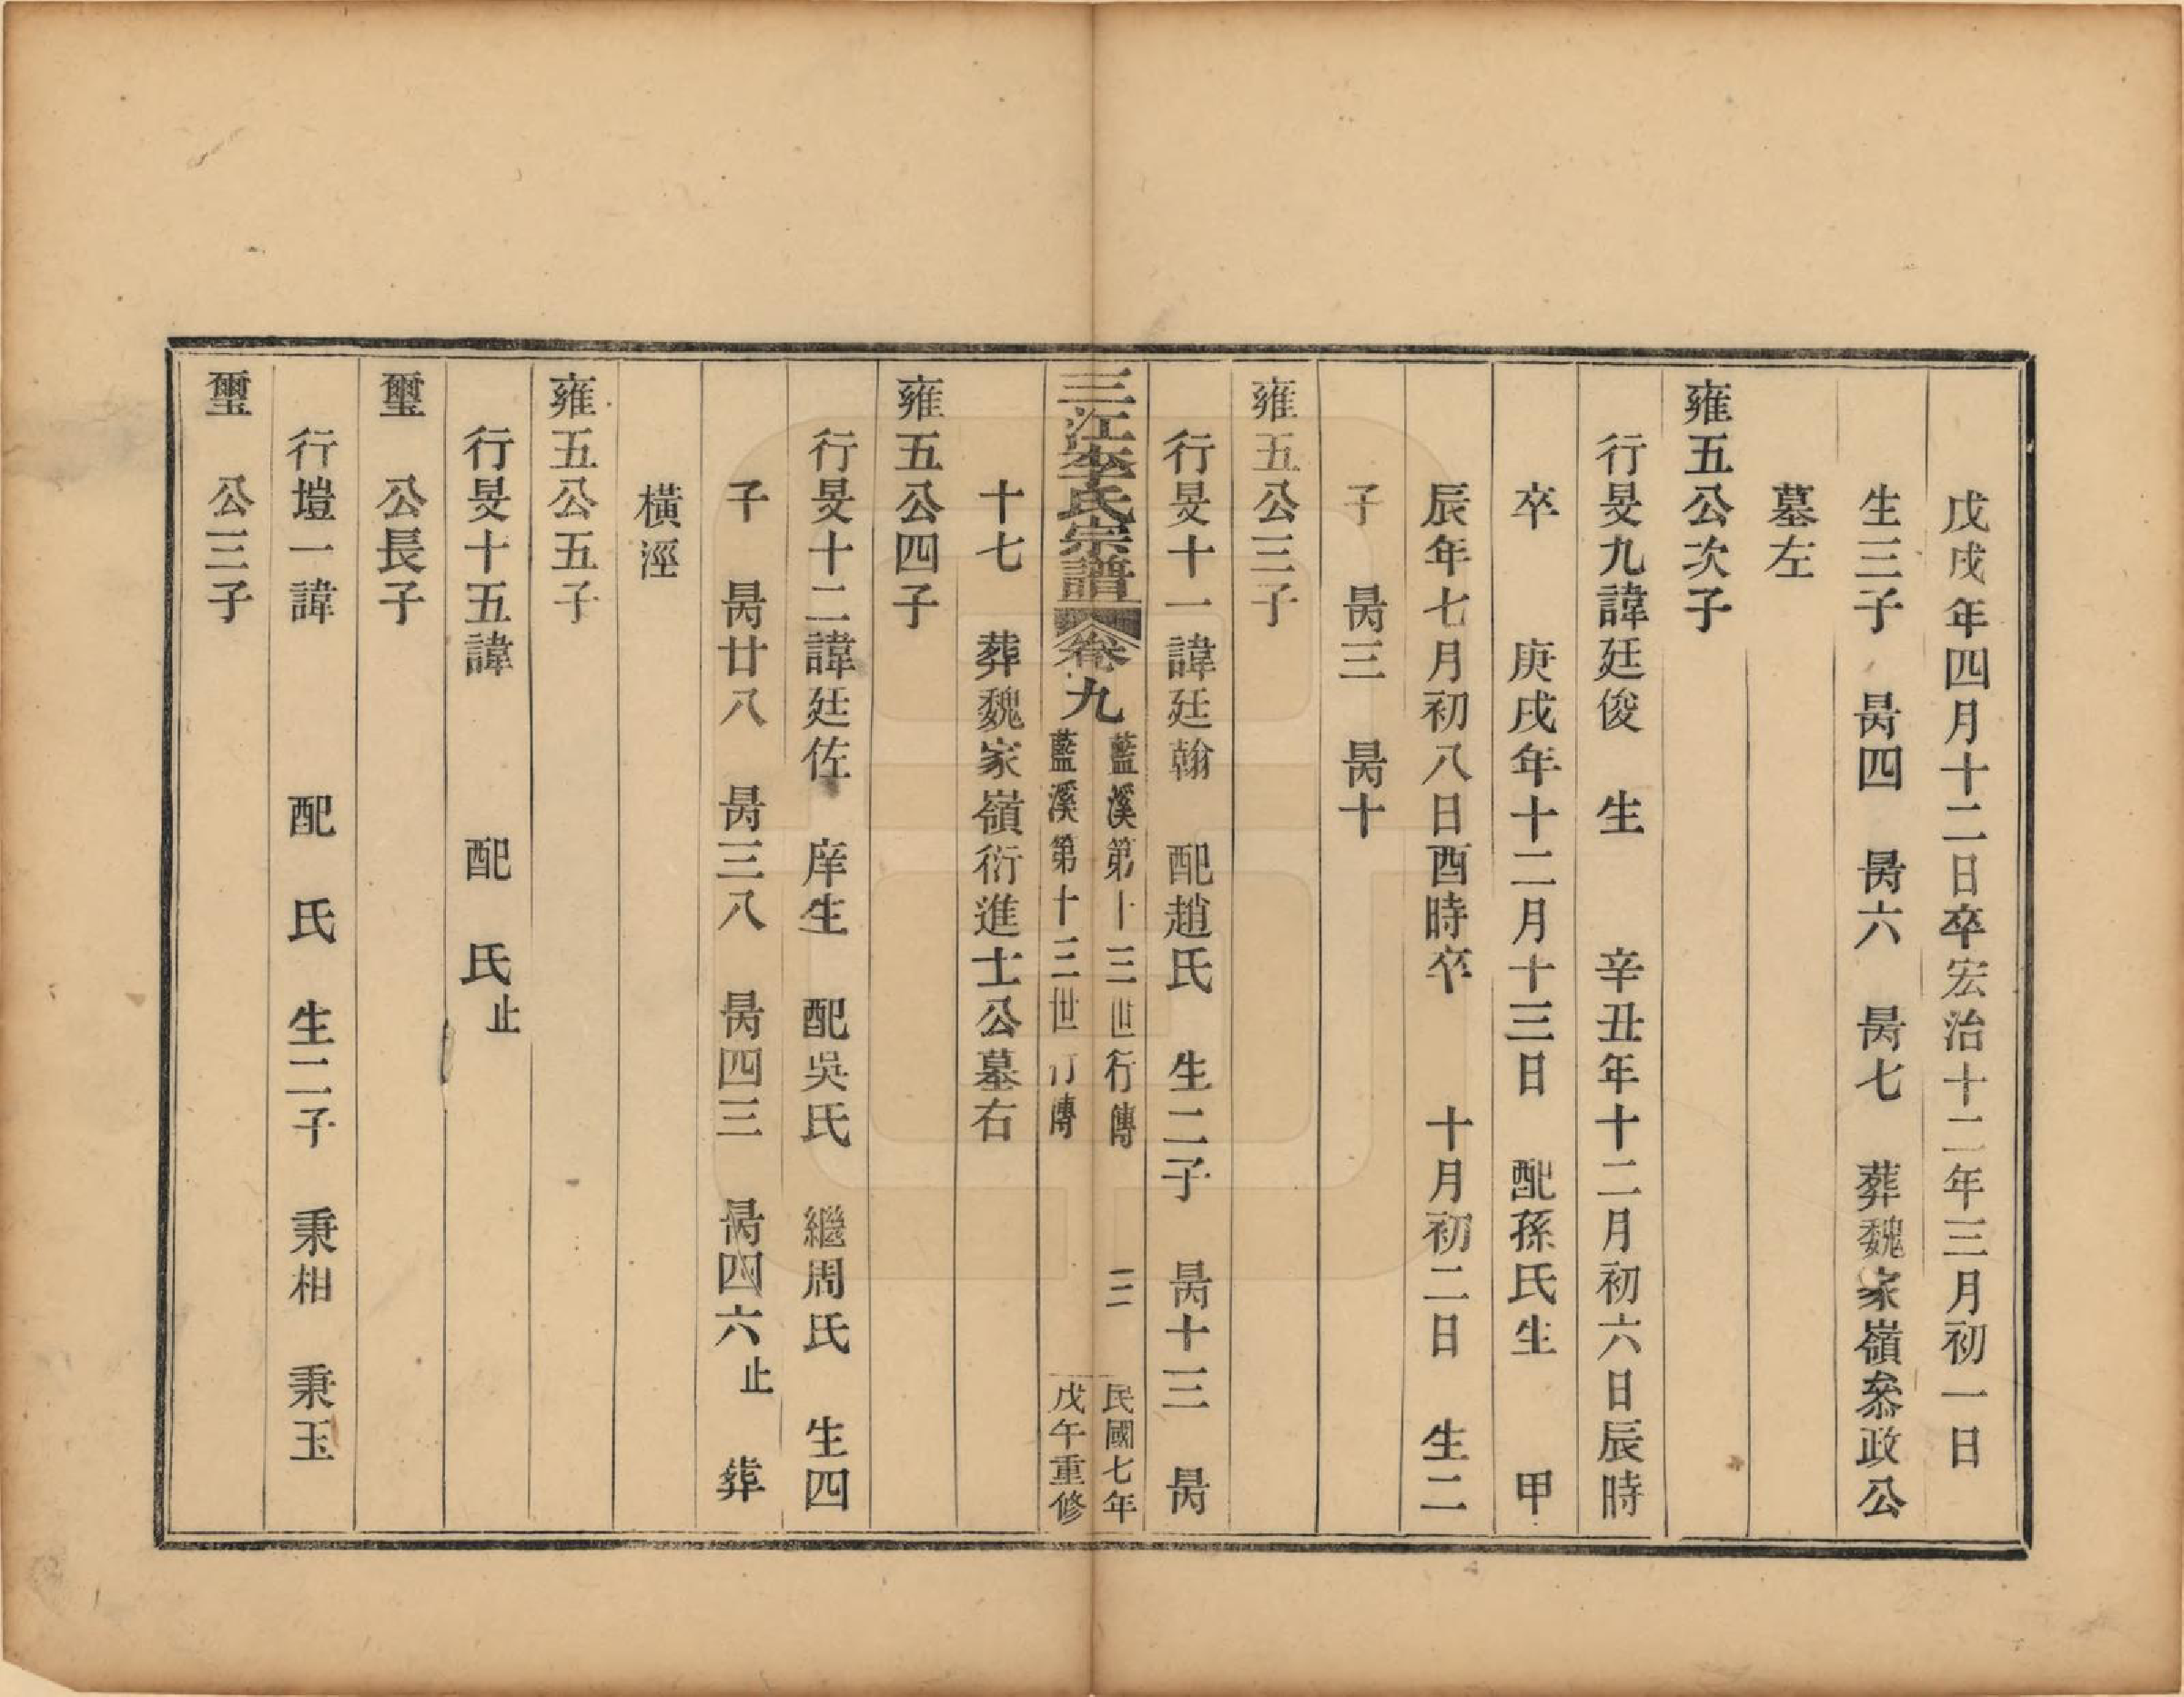 戊戌年四月十二日卒宏治十二年三月初一日
生三子　昺四　昺六　昺七　葬魏家嶺叅政公
墓左
雍五公次子
行旻九諱廷俊　生　辛丑年十二月初六日辰時
卒　庚戌年十二月十三日　配孫氏生　甲
辰年七月初八日酉時卒　十月初二日　生二
子　昺三　昺十
雍五公三子
行旻十一諱廷翰　配趙氏　生二子　昺十三　昺
三江李氏宗譜　卷九
藍溪第十三世行傳　三　民國七年
藍溪第十三世行傳　戊午重修
十七　葬魏家嶺衍進士公墓右
雍五公四子
行旻十二諱廷佐　庠生　配吳氏　繼周氏　生四
子　昺廿八　昺三八　昺四三　昺四六止　葬
橫涇
雍五公五子
行旻十五諱　配　氏止
璽　公長子
行塏一諱　配　氏　生二子　秉相　秉玉
璽　公三子